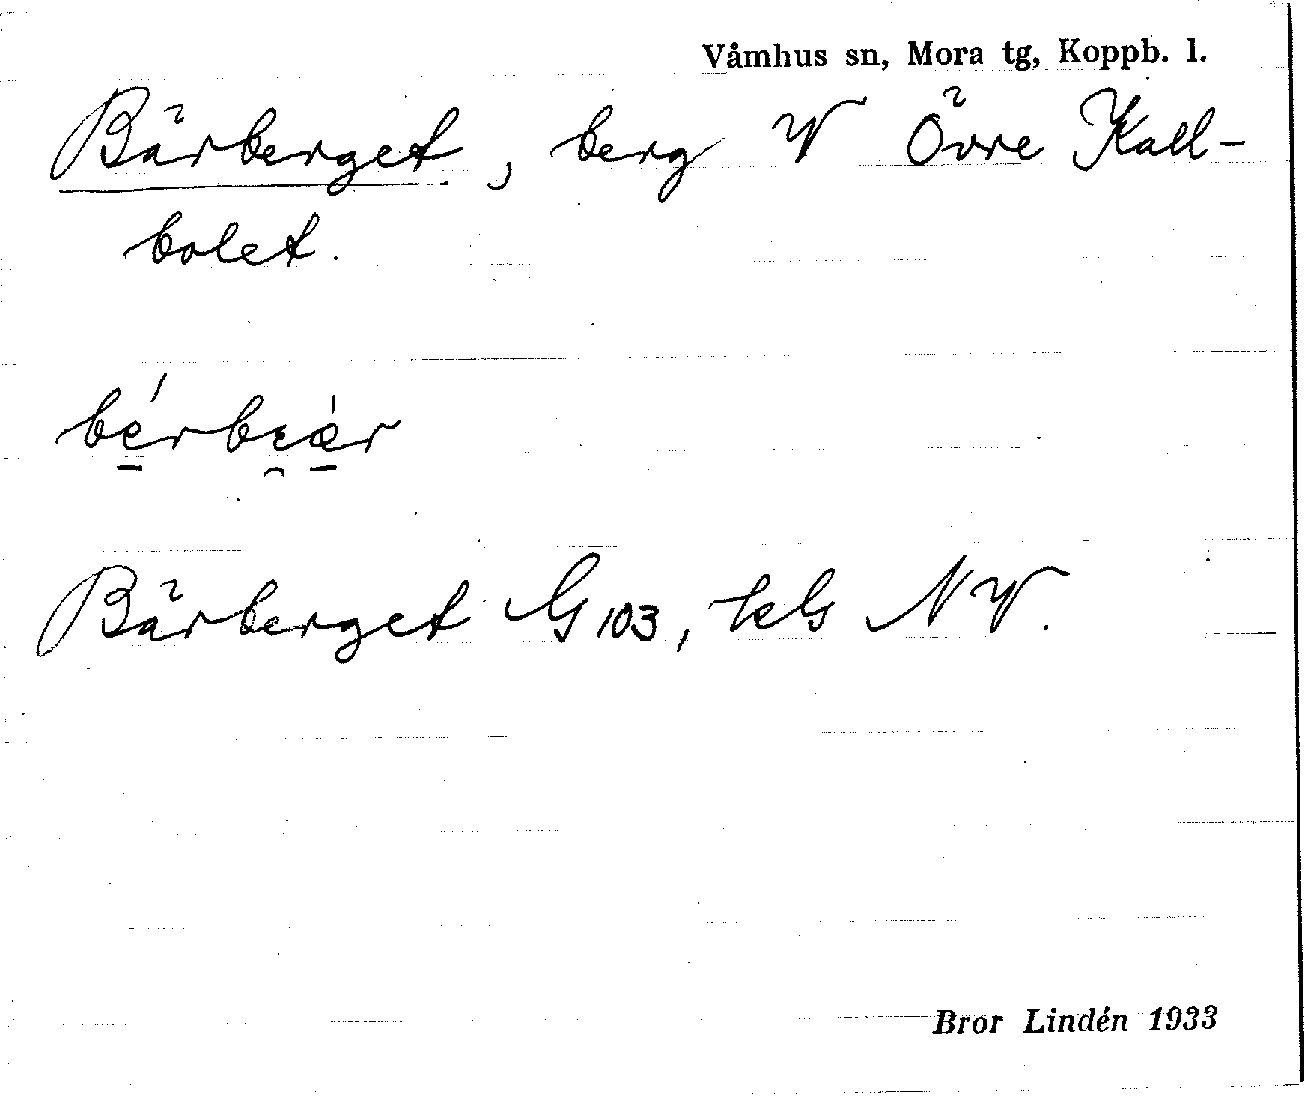 Våmhus sn, Mora tg, Koppb. l.
Bärberget, berg V Övre Kall-
bolet.
bérbɛær
Bärberget G103, kbl NV.
Bror Lindén 1933